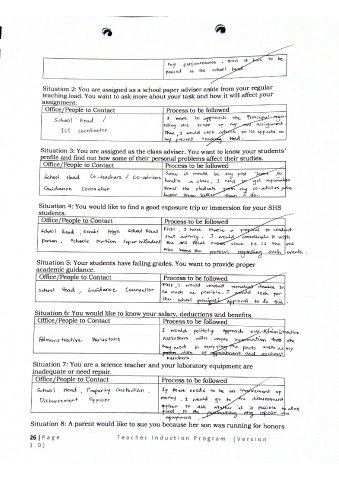 any requirements. Then it has to be
passed to the school head.
Situation 2: You are assigned as a school paper adviser aside from your regular
teaching load. You want to ask more about your task and how it will affect your
assignment.
Office/People to Contact Process to be followed
School Head / I have to approach the Principal
Ict coordinator the scope of my assignment.
Then, I would seek advice on its effects on
my present teaching load.
Situation 3: You are assigned as the class adviser. You want to know your students'
profile and find out how some of their personal problems affect their studies.
Office/People to Contact Process to be followed
School Head Co-teachers / Co-advisers Since it would be my first time to
Guidance Counselor handle a class, I need to get information
about the students from my co-advisers who
know them better than I do.
Situation 4: You would like to find a good exposure trip or immersion for your SHS
students.
Office/People to Contact Process to be followed
School Head, Senior High School Head First, I have to make a proposal to conduct
Person, Schools Division Superintendent that activity. I would coordinate it with
the SHS since he is the one
who knows the process regarding such events.
Situation 5: Your students have failing grades. You want to provide proper
academic guidance.
Office/People to Contact Process to be followed
School Head, Guidance Counselor First, I would conduct remedial classes
as much as possible. I would ask for
the school principal's approval to do this.
Situation 6: You would like to know your salary, deductions and benefits.
Office/People to Contact Process to be followed
Administrative Assistant I would politely approach our Administrative
Assistant with ample information that she
may need in verifying the
date of appointment and
Situation 7: You are a science teacher and your laboratory equipment are
inadequate or need repair.
Office/People to Contact Process to be followed
School Head, Property Custodian, If there needs to be an involvement of
Disbursement Officer money, I would go to the disbursement
officer to ask whether it is possible to allot
fund to the purchasing or repair the
equipment.
Situation 8: A parent would like to sue you because her son was running for honors
26 | P a g e T e a c h e r I n d u c t i o n P r o g r a m ( V e r s i o n
1 . 0 )